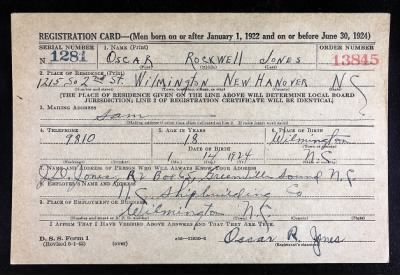 REGISTRATION CARD—(Men born on or after January 1, 1922 and on or before June 30, 1924)
SERIAL NUMBER 1. NAME (Print) ORDER NUMBER
N 1281 OSCAR ROCKWELL JONES 13845
(First) (Middle) (Last)
2. PLACE OF RESIDENCE (Print)
1215 So 2nd St. WILMINGTON NEW HANOVER N C
(Number and street) (Town, township, village, or city) (County) (State)
(THE PLACE OF RESIDENCE GIVEN ON THE LINE ABOVE WILL DETERMINE LOCAL BOARD
JURISDICTION; LINE 2 OF REGISTRATION CERTIFICATE WILL BE IDENTICAL)
3. MAILING ADDRESS
Sam
(Mailing address if other than place indicated on line 2. If same insert word same)
4. TELEPHONE 5. AGE IN YEARS 6. PLACE OF BIRTH
9810 18 Wilmington
DATE OF BIRTH (Town or county)
1 14 1924 N.C.
(Exchange) (Number) (Mo.) (Day) (Yr.) (State or country)
7. NAME AND ADDRESS OF PERSON WHO WILL ALWAYS KNOW YOUR ADDRESS
Jones R1 Box Greenville Sound N.C.
8. EMPLOYER'S NAME AND ADDRESS
N.C. Shipbuilding Co
9. PLACE OF EMPLOYMENT OR BUSINESS
Wilmington N.C.
(Number and street or R. F. D. number) (Town) (County) (State)
I AFFIRM THAT I HAVE VERIFIED ABOVE ANSWERS AND THAT THEY ARE TRUE.
D. S. S. Form 1
(Revised 6-9-42) (over) Oscar R. Jones
(Registrant's signature)